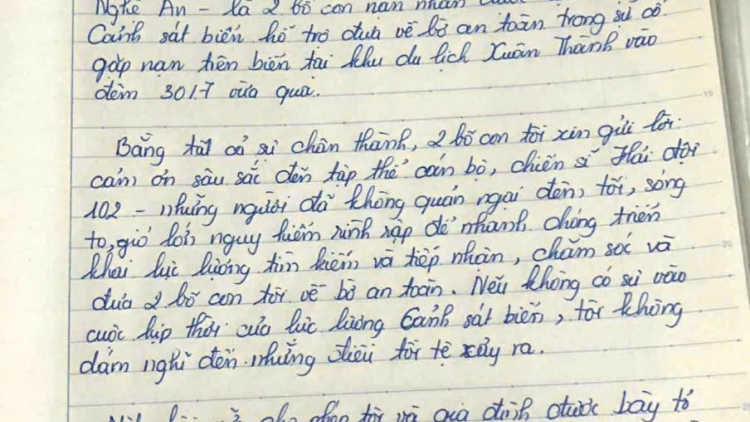 Nghệ An - là 2 bố con nạn nhân được
Cảnh sát biển hỗ trợ đưa về bờ an toàn trong sự cố
gặp nạn trên biển tại khu du lịch Xuân Thành vào
đêm 30/7 vừa qua.
Bằng tất cả sự chân thành, 2 bố con tôi xin gửi lời
cảm ơn sâu sắc đến tập thể cán bộ, chiến sĩ Hải đội
102 - những người đã không quản ngại đêm tối, sóng
to, gió lớn nguy hiểm rình rập để nhanh chóng triển
khai lực lượng tìm kiếm và tiếp nhận, chăm sóc và
đưa 2 bố con tôi về bờ an toàn. Nếu không có sự vào
cuộc kịp thời của lực lượng Cảnh sát biển, tôi không
dám nghĩ đến những điều tồi tệ xảy ra.
tôi và gia đình được bày tỏ